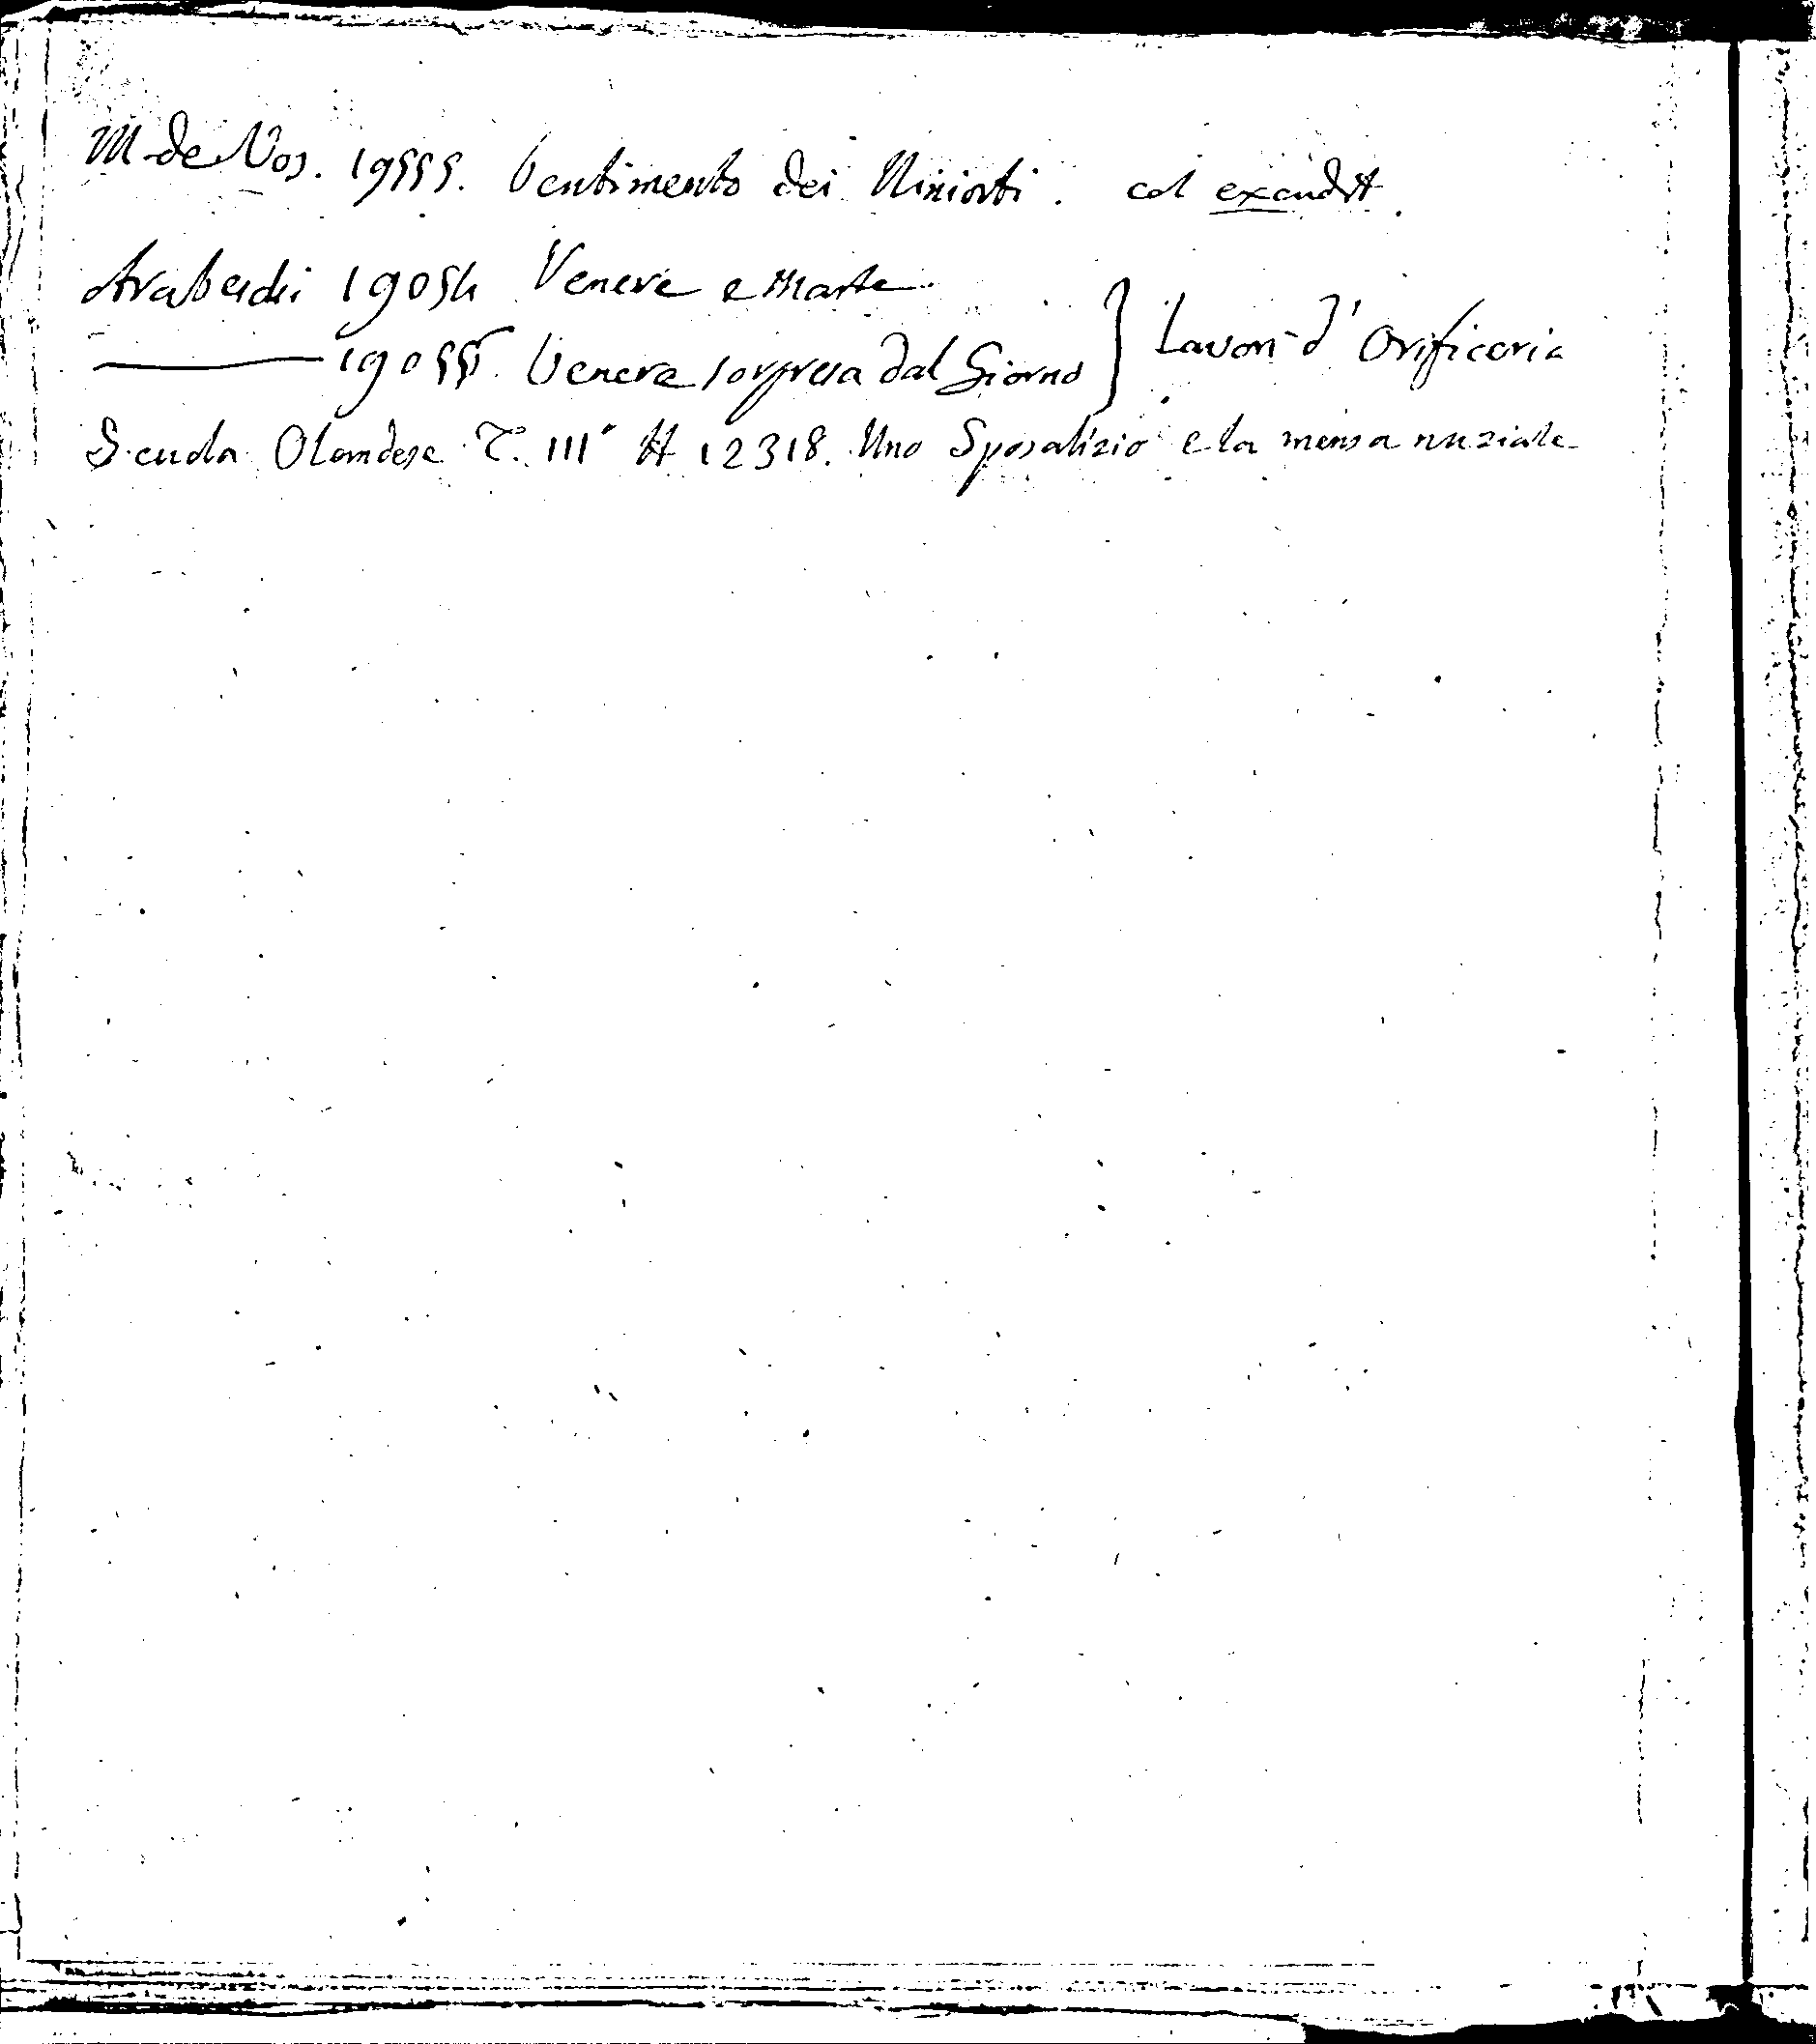 M de Vos. 19555. Pentimento dei Niniviti. col excudit.
Arabeschi 19054 Venere e Marte
——— 19055. Venere sorpresa dal Giorno } Lavori d' Orificeria
Scuola Olandese T. III° A 12318. Uno Sposalizio e la mensa nuziale